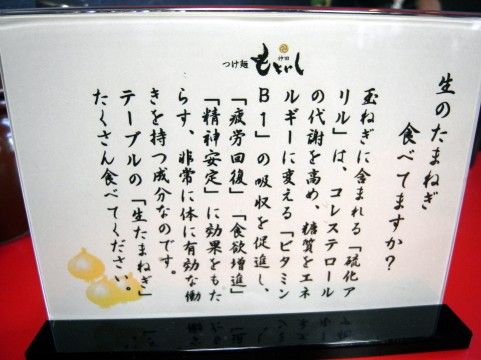 つけ麺
神田
もといし
生のたまねぎ
食べてますか？
玉ねぎに含まれる「硫化ア
リル」は、コレステロール
の代謝を高め、糖質をエネ
ルギーに変える「ビタミン
B1」の吸収を促進し、
「疲労回復」「食欲増進」
「精神安定」に効果をもた
らす、非常に体に有効な働
きを持つ成分なのです。
テーブルの「生たまねぎ」
たくさん食べてください。